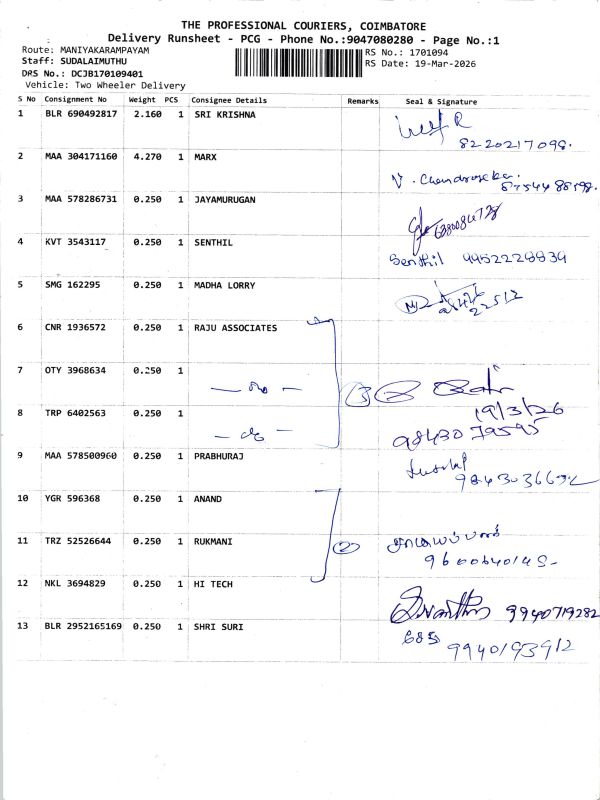 THE PROFESSIONAL COURIERS, COIMBATORE
Delivery Runsheet - PCG - Phone No.:9047080280 - Page No.:1
Route: MANIYAKARAMPAYAM
RS No.: 1701094
Staff: SUDALAIMUTHU
RS Date: 19-Mar-2026
DRS No.: DCJB170109401
Vehicle: Two Wheeler Delivery
S No Consignment No Weight PCS Consignee Details Remarks Seal & Signature
1 BLR 690492817 2.160 1 SRI KRISHNA
8220217098.
2 MAA 304171160 4.270 1 MARX
3 MAA 578286731 0.250 1 JAYAMURUGAN
4 KVT 3543117 0.250 1 SENTHIL
Senthil 9952228839
5 SMG 162295 0.250 1 MADHA LORRY
6 CNR 1936572 0.250 1 RAJU ASSOCIATES
7 OTY 3968634 0.250 1
3
19/3/26
8 TRP 6402563 0.250 1
9843079595
9 MAA 578500960 0.250 1 PRABHURAJ
10 YGR 596368 0.250 1 ANAND
11 TRZ 52526644 0.250 1 RUKMANI
2
12 NKL 3694829 0.250 1 HI TECH
9940719282
13 BLR 2952165169 0.250 1 SHRI SURI
9940193912